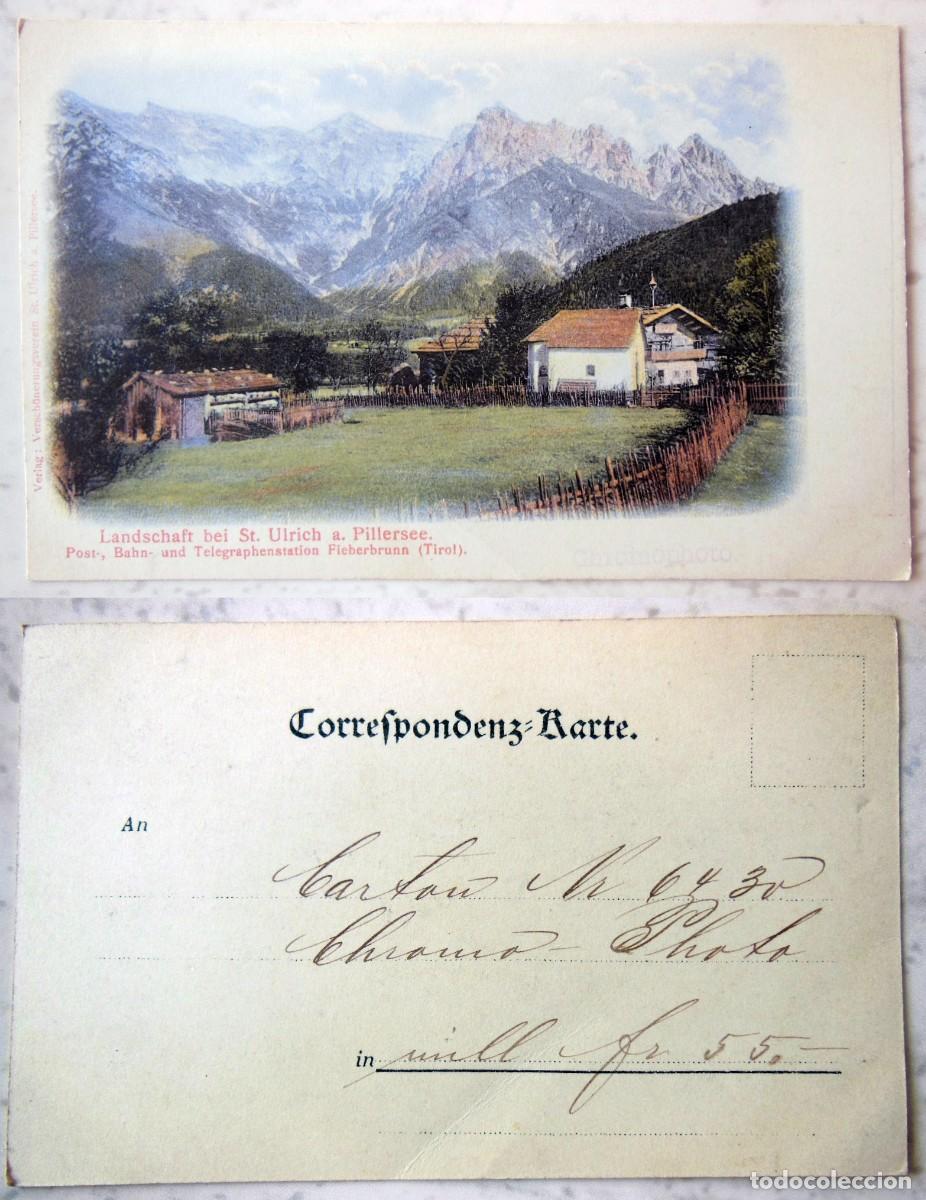 Verlag: Verschönerungsverein St. Ulrich a. Pillersee.
Landschaft bei St. Ulrich a. Pillersee.
Post-, Bahn- und Telegraphenstation Fieberbrunn (Tirol).
Chromophoto
Correſpondenz-Karte.
An
Carton Nr 6430
Chromo-Photo
in mill fr 55.-
todocoleccion